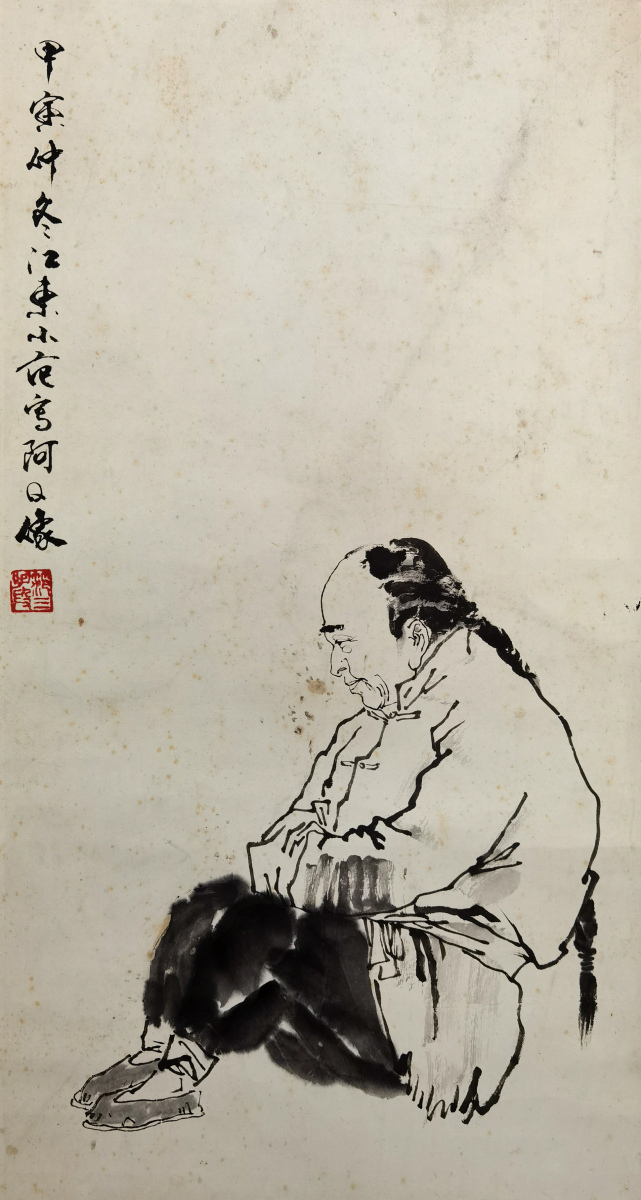 甲寅仲冬江東小范写阿Q像